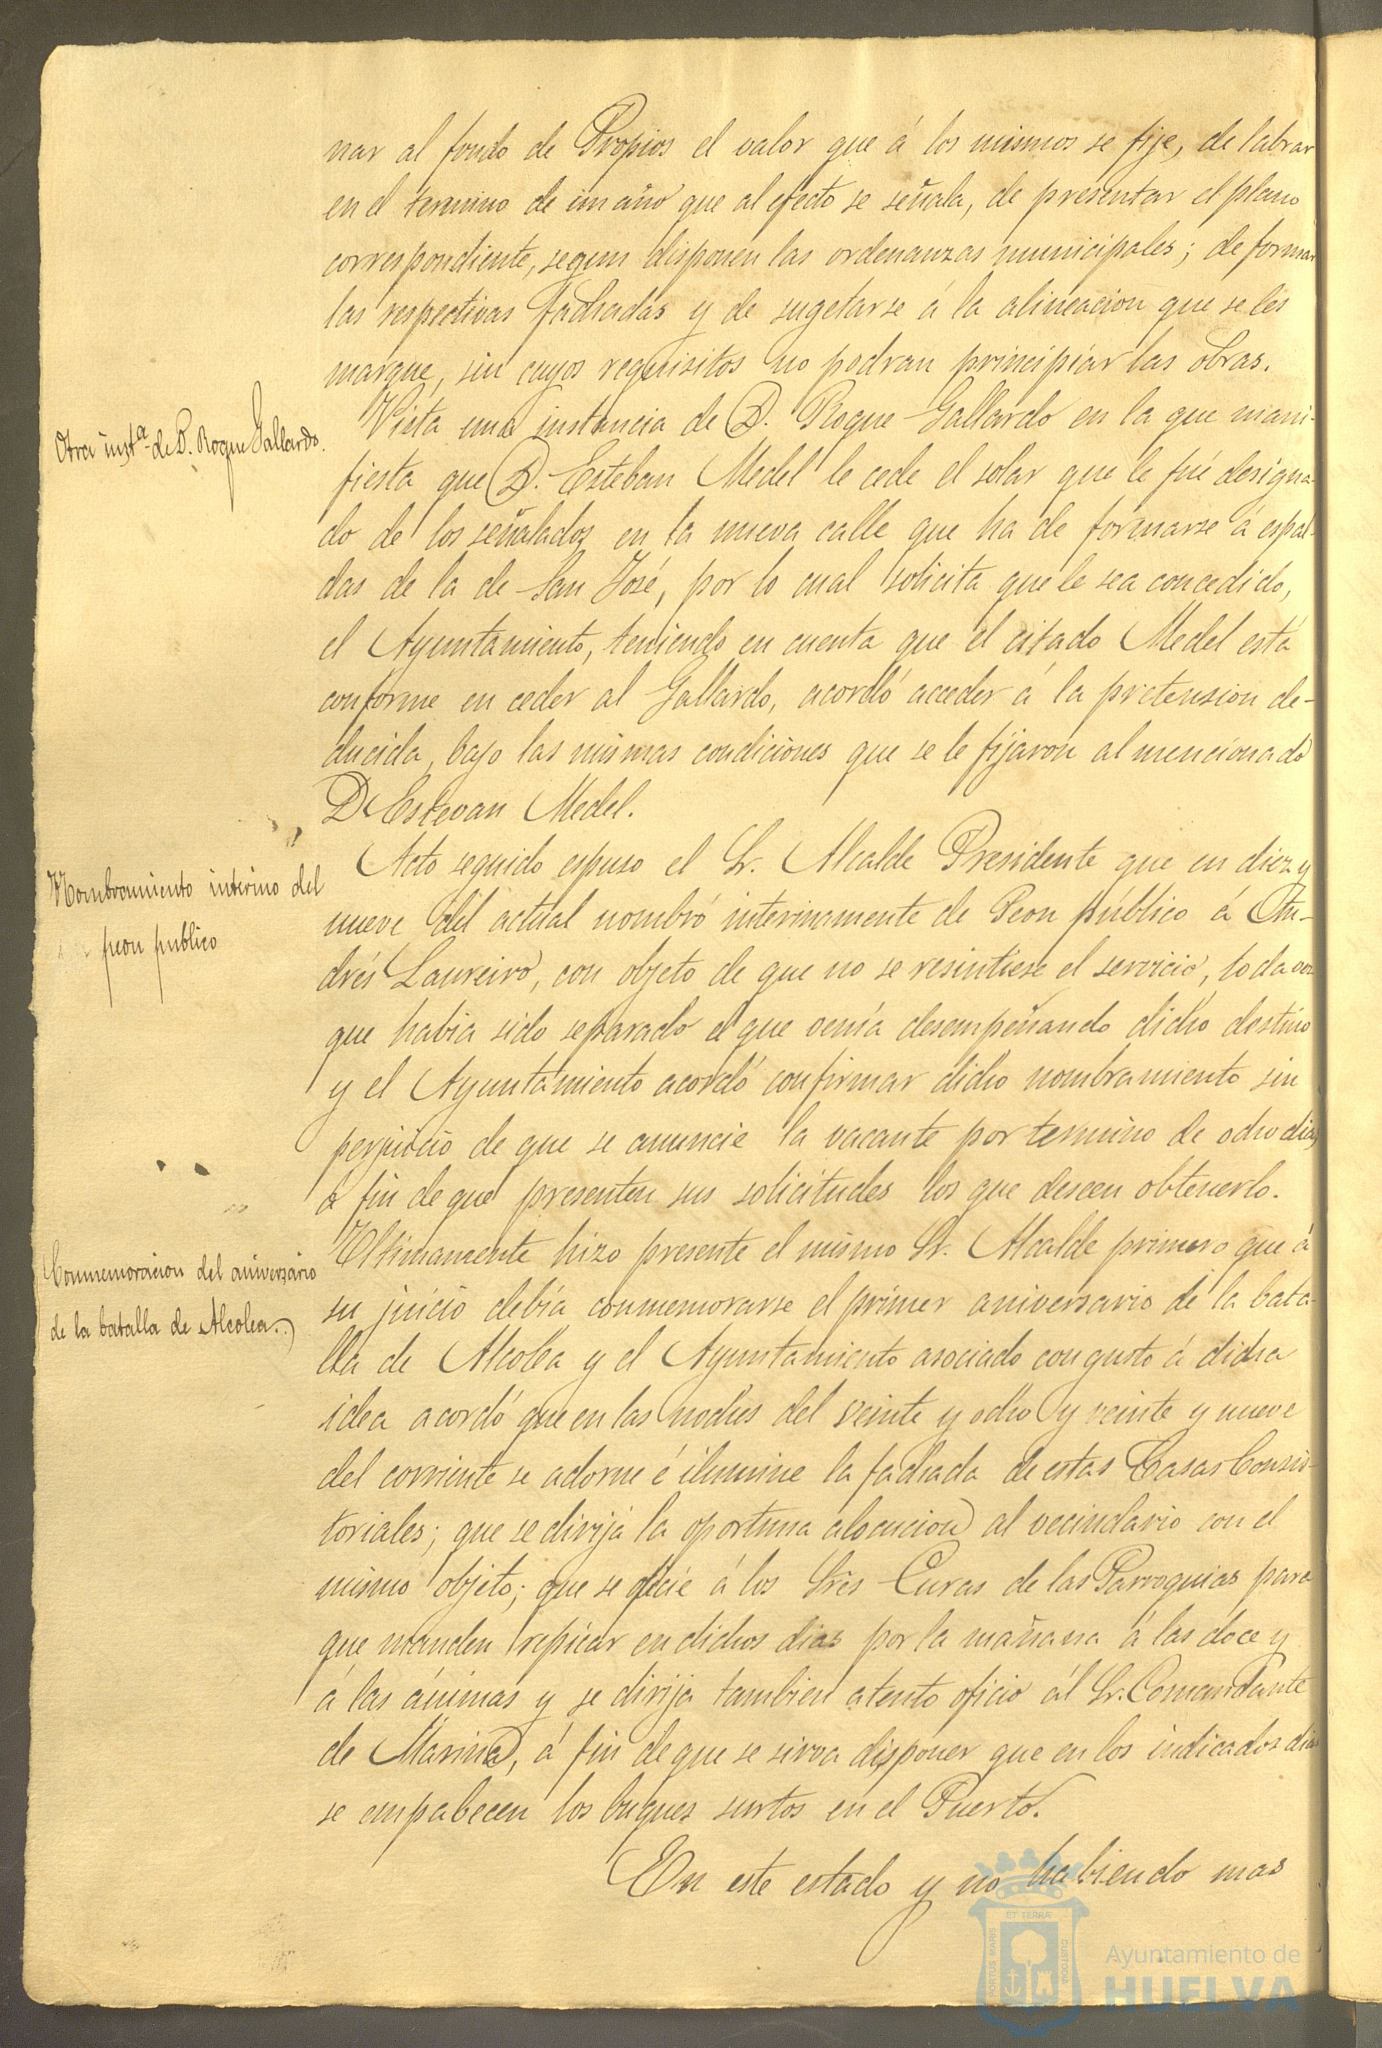 nar al fondo de Propios el valor que á los mismos se fije, de labrar
en el termino de un año que al efecto se señala, de presentar el plano
correspondiente, segun disponen las ordenanzas municipales; de formar
las respectivas fachadas y de sugetarse á la alineacion que se les
marque, sin cuyos requisitos no podran principiar las obras.
Otra inst.a de D. Roque Gallardo.
Vista una instancia de D. Roque Gallardo en la que mani-
fiesta que D. Esteban Medel le cede el solar que le fué designa-
do de los señalados en la nueva calle que ha de formarse á espal-
das de la de San José, por lo cual solicita que le sea concedido,
el Ayuntamiento, teniendo en cuenta que el citado Medel está
conforme en ceder al Gallardo, acordó acceder á la pretension de-
ducida, bajo las mismas condiciones que se le fijaron al mencionado
D Estevan Medel.
Nombramiento interino del
peon publico
Acto seguido espuso el Sr. Alcalde Presidente que en diez y
nueve del actual nombró interinamente de Peon público á An-
drés Laureiro, con objeto de que no se resintiese el servicio, toda vez
que habia sido separado el que venía desempeñando dicho destino
y el Ayuntamiento acordó confirmar dicho nombramiento sin
perjuicio de que se anuncie la vacante por termino de ocho dias
a fin de que presenten sus solicitudes los que deseen obtenerlo.
Conmemoracion del aniversario
de la batalla de Alcolea.
Ultimamente hizo presente el mismo Sr. Alcalde primero que á
su juicio debía conmemorarse el primer aniversario de la bata-
lla de Alcolea y el Ayuntamiento asociado con gusto á dicha
idea acordó que en las noches del veinte y ocho y veinte y nueve
del corriente se adorne é ilumine la fachada de estas Casas Consis-
toriales; que se dirija la oportuna alocucion al vecindario con el
mismo objeto; que se oficie á los Sres Curas de las Parroquias para
que manden repicar en dichos dias por la mañana á las doce y
á las ánimas y se dirija tambien atento oficio ál Sr. Comandante
de Marina, á fin de que se sirva disponer que en los indicados dias
se empabecen los buques surtos en el Puerto.
En este estado y no habiendo mas
PORTUS MARIS
ET TERRÆ
CUSTODIA
Ayuntamiento de
HUELVA